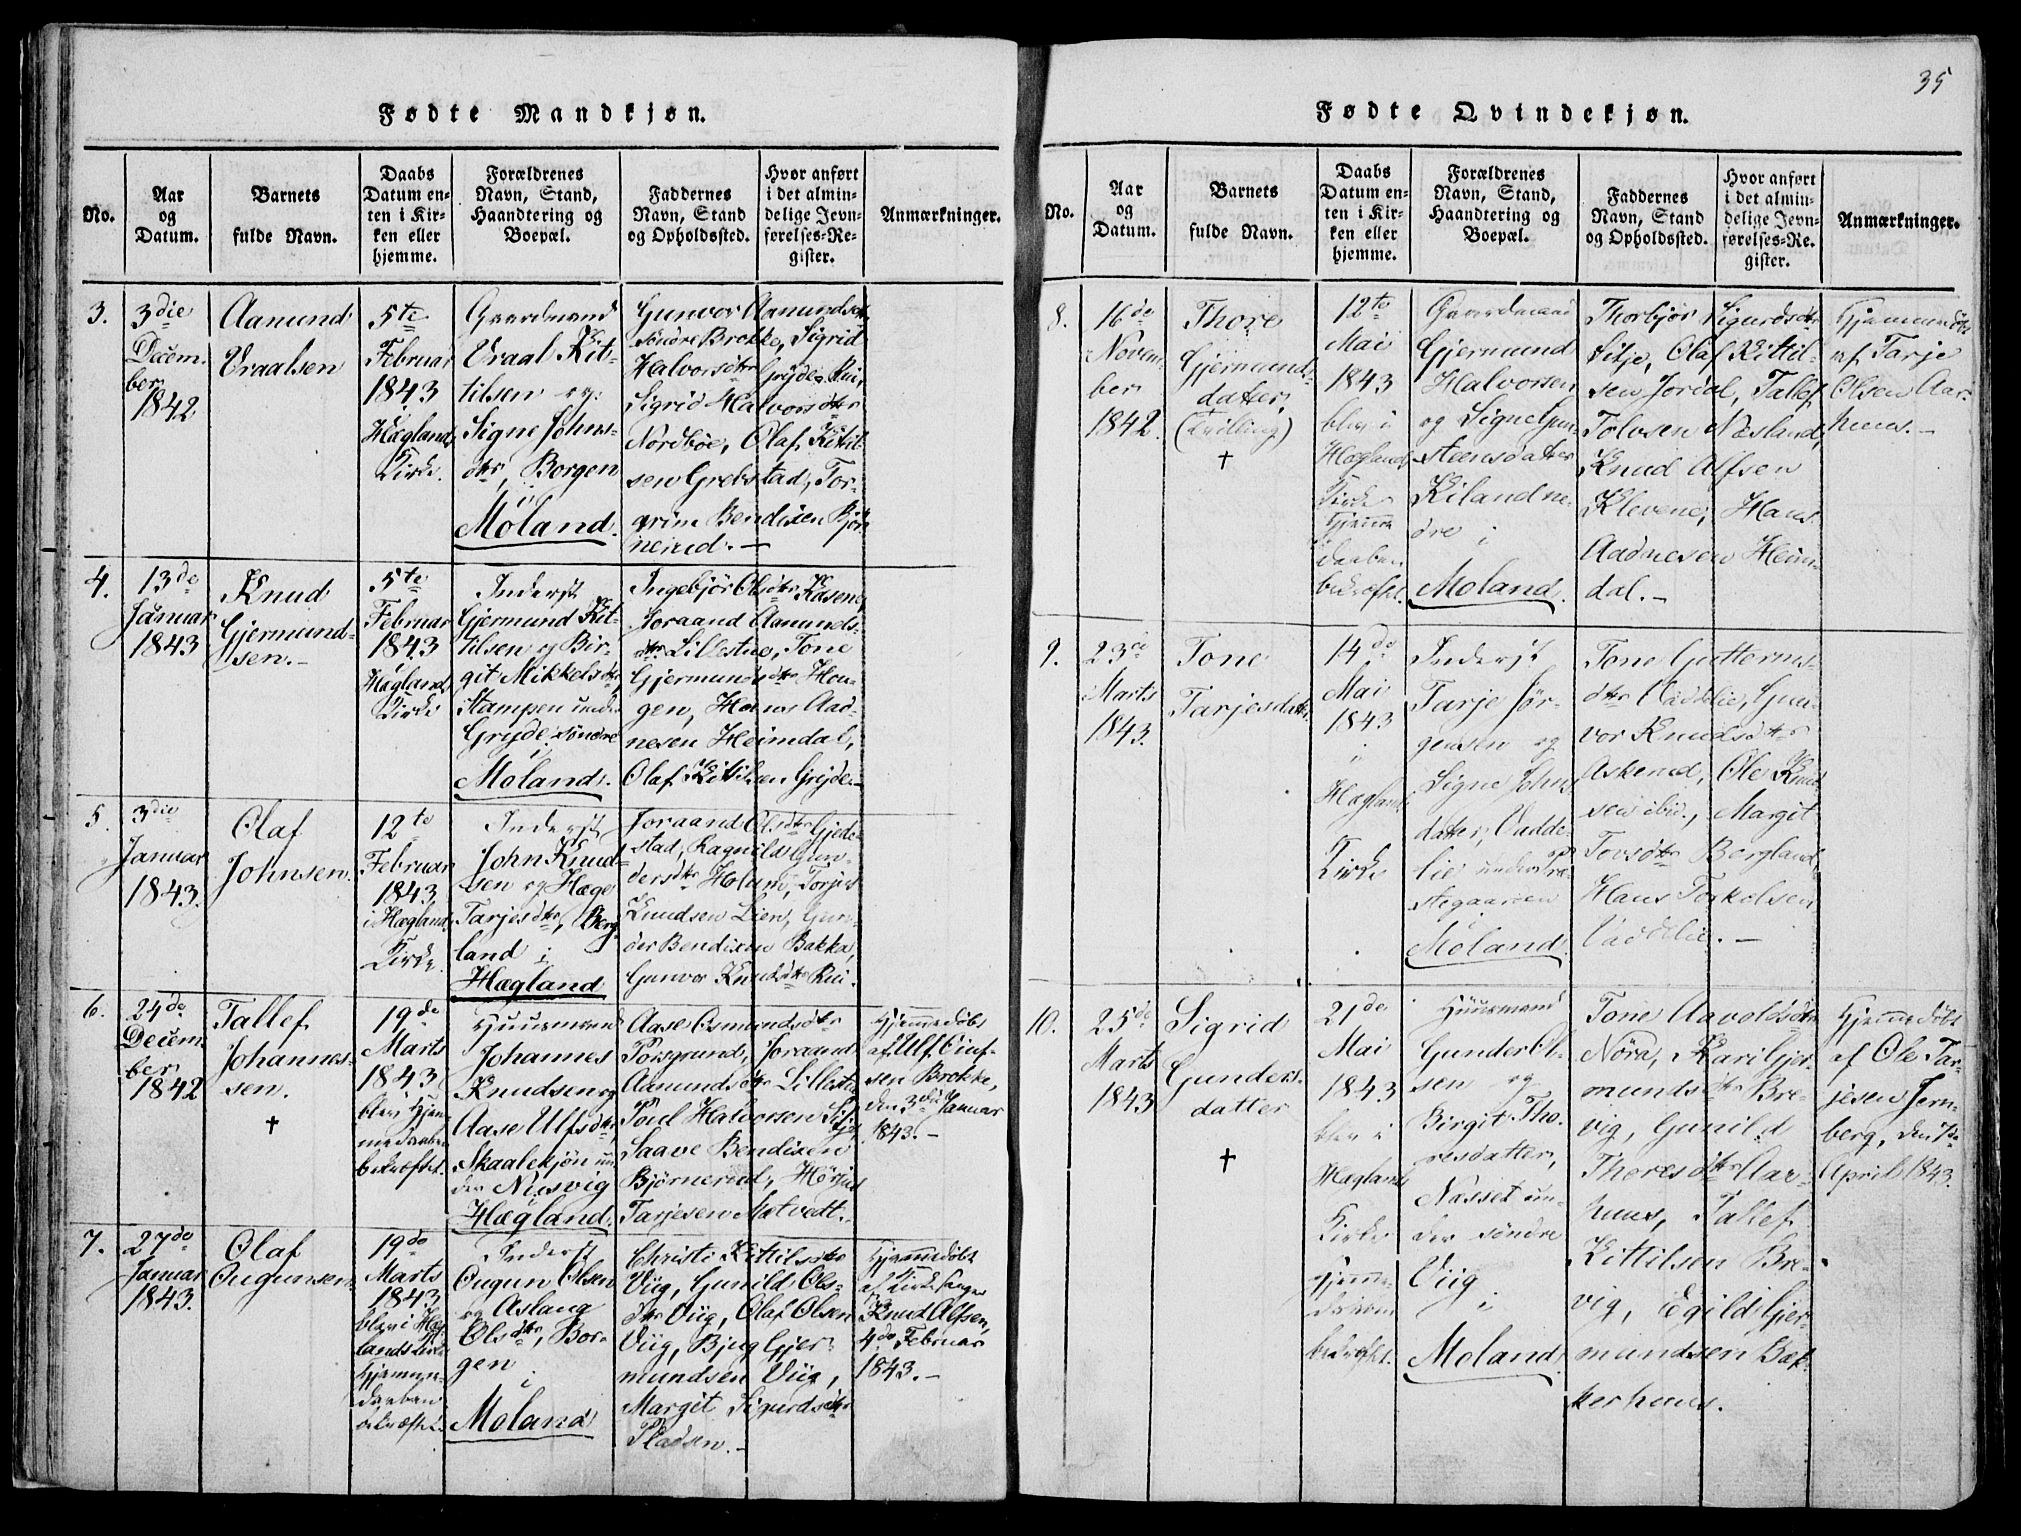 35
Fødte Mandkjøn.
No.
Aar
og
Datum.
Barnets
fulde Navn.
Daabs
Datum en-
ten i Kir-
ken eller
hjemme.
Forældrenes
Navn, Stand,
Haandtering og
Boepæl.
Faddernes
Navn, Stand
og Opholdssted.
Hvor anført
i det almin-
delige Jevn-
førelses-Re-
gister.
Anmærkninger.
3.
3die
Decem-
ber
1842
Aamund
Vraalsen
5te
Februar
1843
i
Hægland
Kirke.
Gaardmand
Vraal Kit-
tilsen og
Signe Johns-
dtr, Borgen
i
Moland.
Gunvor Aamundsdtr
söndre Brokke, Sigrid
Halvorsdtr Gryde, Rui,
Sigrid Halvorsdtr
Nordbøe, Olaf Kittil-
sen Grebstad, Tor-
grim Bendixen Björ-
nerud.-
4.
13de
Januar
1843
Knud
Gjermund-
sen.-
5te
Februar
1843
i
Hægland
Kirke
Inderst
Gjermund Kit-
tilsen og Bir-
git Mikkelsdtr,
Stampen under
Gryde söndre
i
Moland.
Ingebjör Olsdtr Kasene,
Joraand Aamunds-
dtr Lillestue, Tone
Gjermundsdtr Hou-
gen, Hans Aad-
nesen Heimdal,
Olaf Kittilsen Gryde.-
5.
3die
Januar
1843.
Olaf
Johnsen.
12te
Februar
1843
i Hægland
Kirke.
Inderst
John Knud-
sen og Hæge
Tarjesdtr, Berg-
land i
Hægland
Joraand Olsdtr Gjede-
stad, Ragnild Gun-
dersdtr Holund, Torjus
Knudsen Lien, Gun-
der Bendixen Bakka,
Gunvor Knudsdtr Rui.
6.
24de
Decem-
ber
1842
Tallef
Johannes-
sen.
†
19de
Marts
1843
blev Hjem-
medaaben
bekræftet.
Huusmand
Johannes
Knudsen og
Aase Ulfsdtr,
Skaaleskjön un-
der Nesvig
i
Hægland.
Aase Osmundsdtr
Porsgrund, Joraand
Aamundsdtr Lillestue
Poul Halvorsen Sitje,
Saave Bendixen
Björnerud,
Tarjesen Matvedt.
Hjemmedöbt
af Ulf
sen Brokke,
den 3die Januar
1843.-
7.
27de
Januar
1843.
Olaf
Ougunsen
19de
Marts
1843
blev i Hæg-
lands Kirke
Hjemme-
daaben
bekræftet.
Inderst
Ougun Olsen
og Aslaug
Olsdtr, Bor-
gen
i
Moland
Christi Kittilsdtr
Viig, Gunild Ols-
dtr Viig, Olaf Olsen
Viig, Bjug Gjer-
mundsen Viig,
Margit Sigurdsdtr
Pladsen.-
Hjemmedöbt
af Kirkesanger
Knud Alfsen,
4de Februar
1843.-
Fødte Qvindekjøn.
No.
Aar
og
Datum.
Barnets
fulde Navn.
Daabs
Datum en-
ten i Kir-
ken eller
hjemme.
Forældrenes
Navn, Stand,
Haandtering og
Boepæl.
Faddernes
Navn, Stand
og Opholdssted.
Hvor anført
i det almin-
delige Jevn-
førelses-Re-
gister.
Anmærkninger.
8.
16de
Novem-
ber
1842.
Thore
Gjermunds-
datter,
(Tvilling)
†
12te
Mai
1843
blev i
Hægland
Kirke
Hjemme-
daaben
bekræftet.
Gaardmand
Gjermund
Halvorsen
og Signe Gun-
steensdatter
Kiland ne-
dre i
Moland.
Thorbjör Sigurdsdtr
Sitje, Olaf Kittil-
sen Jordal, Tallef
Tolvsen Næsland,
Knud Alfsen
Klevene, Hans
Aadnesen Heim-
dal.-
Hjemmedöbt
af Tarje
Olsen Aar-
huus.-
9.
23de
Marts
1843.
Tone
Tarjesdatter
14de
Mai
1843
i
Hægland
Kirke
Inderst
Tarje Jör-
gensen og
Signe Johns-
datter, Vadde-
lie under Præ-
stegaarden
i
Moland.
Tone Guttorms-
dtr Vaddelie, Gun-
vor Knudsdtr
Askerud, Ole Knud-
sen ibid., Margit
Tovsdtr Bergland,
Hans Torkelsen
Vaddelie.-
10.
25de
Marts
1843
Sigrid
Gunders-
datter
†
21de
Mai
1843
blev i
Hægland
Kirke
Hjemme-
daaben
bekræftet.
Huusmand
Gunder Ol-
sen og
Birgit Tho-
resdatter,
Næsset un-
der söndre
Viig
i
Moland.
Tone Aavoldsdtr
Nöra, Kari Gjer-
mundsdtr Bre-
vig, Gunild
Thoresdtr Aar-
huus, Tallef
Kittilsen Bre-
vig, Egild Gjer-
mundsen Bak-
kerhuus.
Hjemmedöbt
af Ole Tar-
jesen Jern-
berg, den 7de
April 1843.